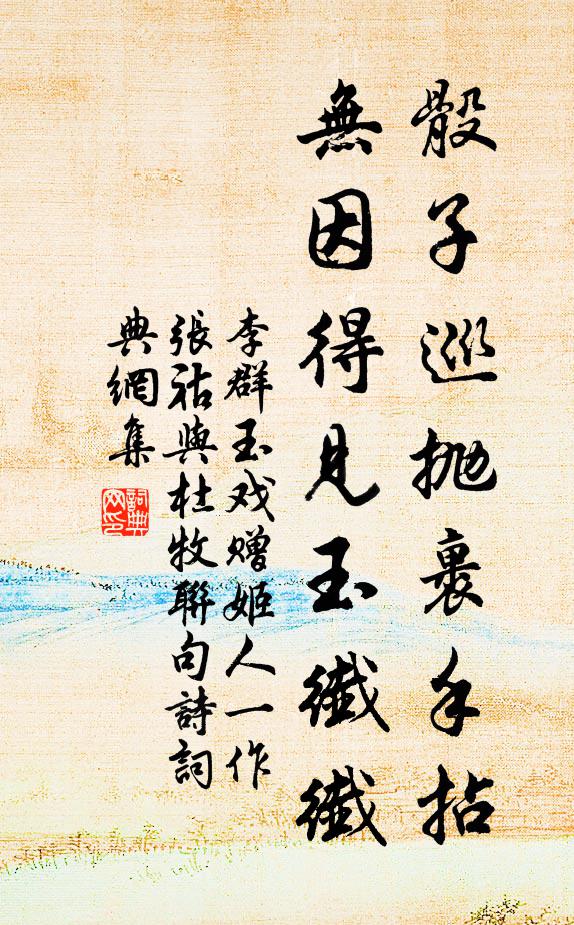 骰子巡抛裹手拈
無因得見玉纖纖
李群玉戏赠姬人一作
張祜與杜牧聯句詩詞
典網集
詞典
网印